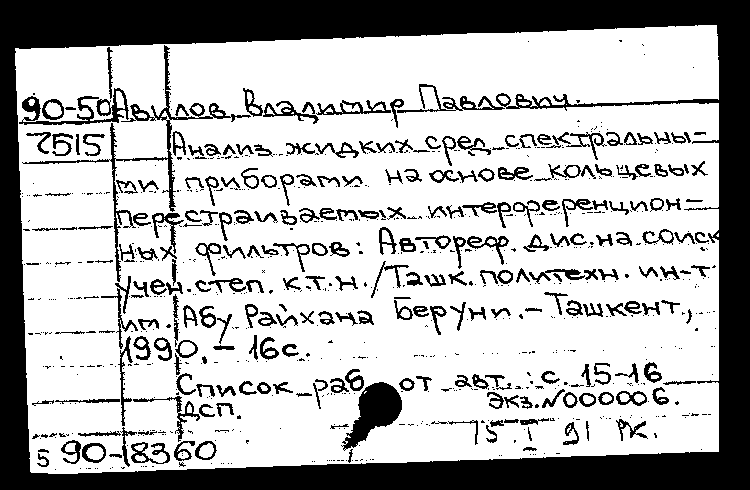 90-50 Авилов, Владимир Павлович.
2515 Анализ жидких сред спектральны-
ми приборами на основе кольцевых
перестраиваемых интерференцион-
ных фильтров: Автореф. дис. на соиск
учен. степ. к.т.н. / Ташк. политехн. ин-т
им. Абу Райхана Беруни. - Ташкент,
1990. - 16 с.
Список раб от авт. : с. 15-16
ДСП. Экз. N 000006.
15.I 91 РК.
5 90-18360